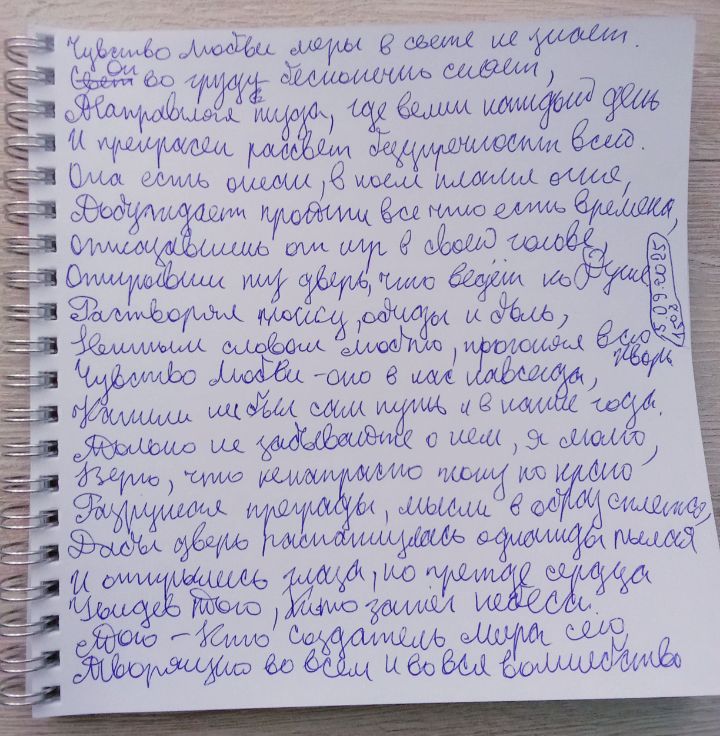 Чувство Любви меры в свете не знает.
Он во груди бесконечно сияет,
Направляя туда, где велик каждый день
И прекрасен рассвет безупречности всей.
Она есть океан, в коем пламя огня,
Побуждает пройти все что есть времена,
отказавшись от игр в своей голове,
Открывши ту дверь, что ведёт ко Душе
Растворяя тоску, обиды и боль,
Ценным словом люблю, прогоняя всю хворь
Чувство Любви - оно в нас навсегда,
Каким не был сам путь и в какие года.
Только не забывайте о нем, я молю,
Верю, что ненапрасно толку по крылю
Разрушая преграды, мысли в образ сплетая,
Дабы дверь распахнулась однажды пылая
И открылись глаза, но прежде сердца
Увидев Того, Кто зажёг небеса.
Того - Кто создатель мира сего,
Творящий во всем и во вся волшебство
15.09.2025